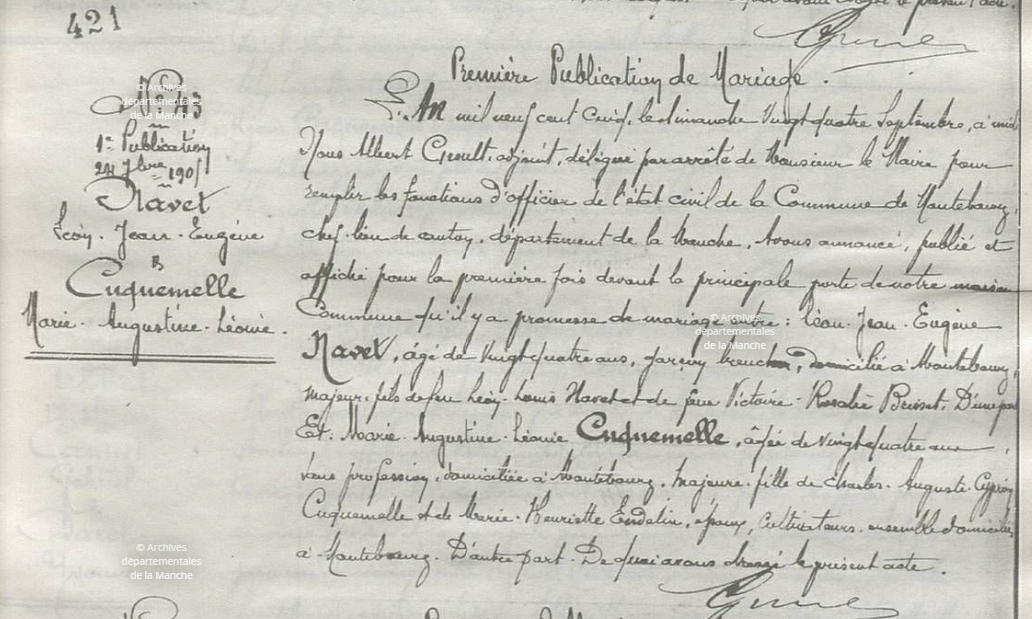 421
N° 43
1re Publication
24 7bre 1905
Navet
Léon. Jean. Eugène
&
Cuquemelle
Marie. Augustine. Léonie.
Première Publication de Mariage.
L'an mil neuf cent cinq, le dimanche vingt quatre Septembre, à midi
Nous Albert Groult, adjoint, délégué par arrêté de Monsieur le Maire pour
remplir les fonctions d'officier de l'état civil de la Commune de Montebourg,
chef-lieu de canton, département de la Manche, Avons annoncé, publié et
affiché pour la première fois devant la principale porte de notre maison
Commune qu'il y a promesse de mariage entre : Léon. Jean. Eugène
Navet, âgé de vingt quatre ans, garçon, domicilié à Montebourg,
majeur, fils de feu Léon-Louis Navet et de feue Victoire-Rosalie D'une part
Et: Marie. Augustine. Léonie Cuquemelle, âgée de vingt quatre ans,
sans profession, domiciliée à Montebourg, majeure, fille de Charles. Auguste. Cyprien
Cuquemelle et de Marie. Henriette Endelin, époux, Cultivateurs, ensemble domiciliés
à Montebourg. D'autre part. De quoi avons dressé le présent acte.
© Archives
départementales
de la Manche
© Archives
départementales
de la Manche
© Archives
départementales
de la Manche